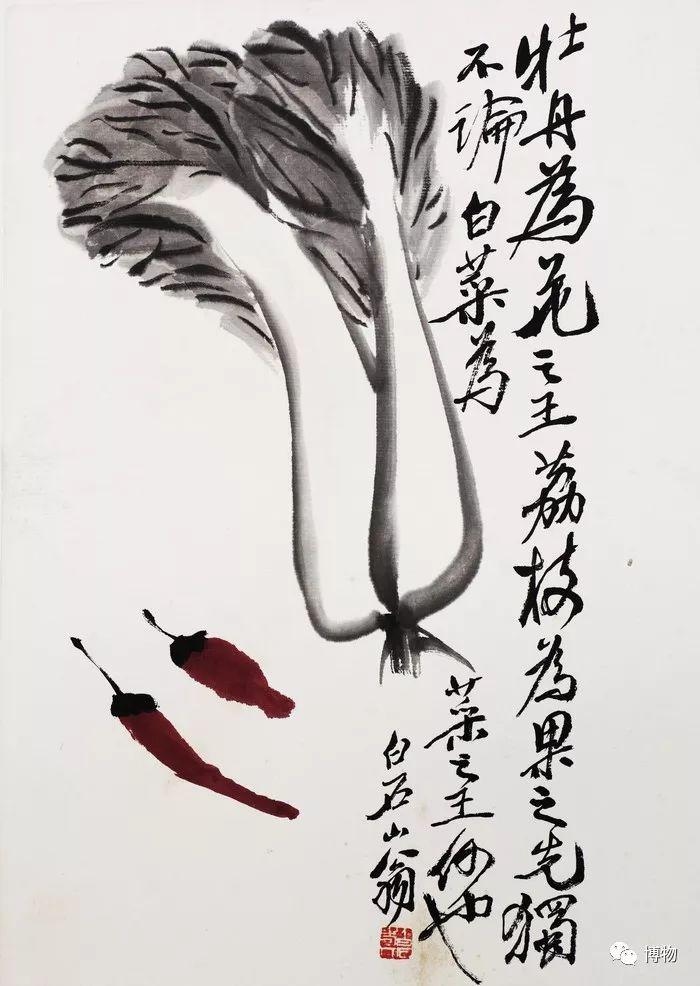 牡丹為花之王荔枝為果之先獨
不論白菜為
菜之王何也
白石山翁
博物